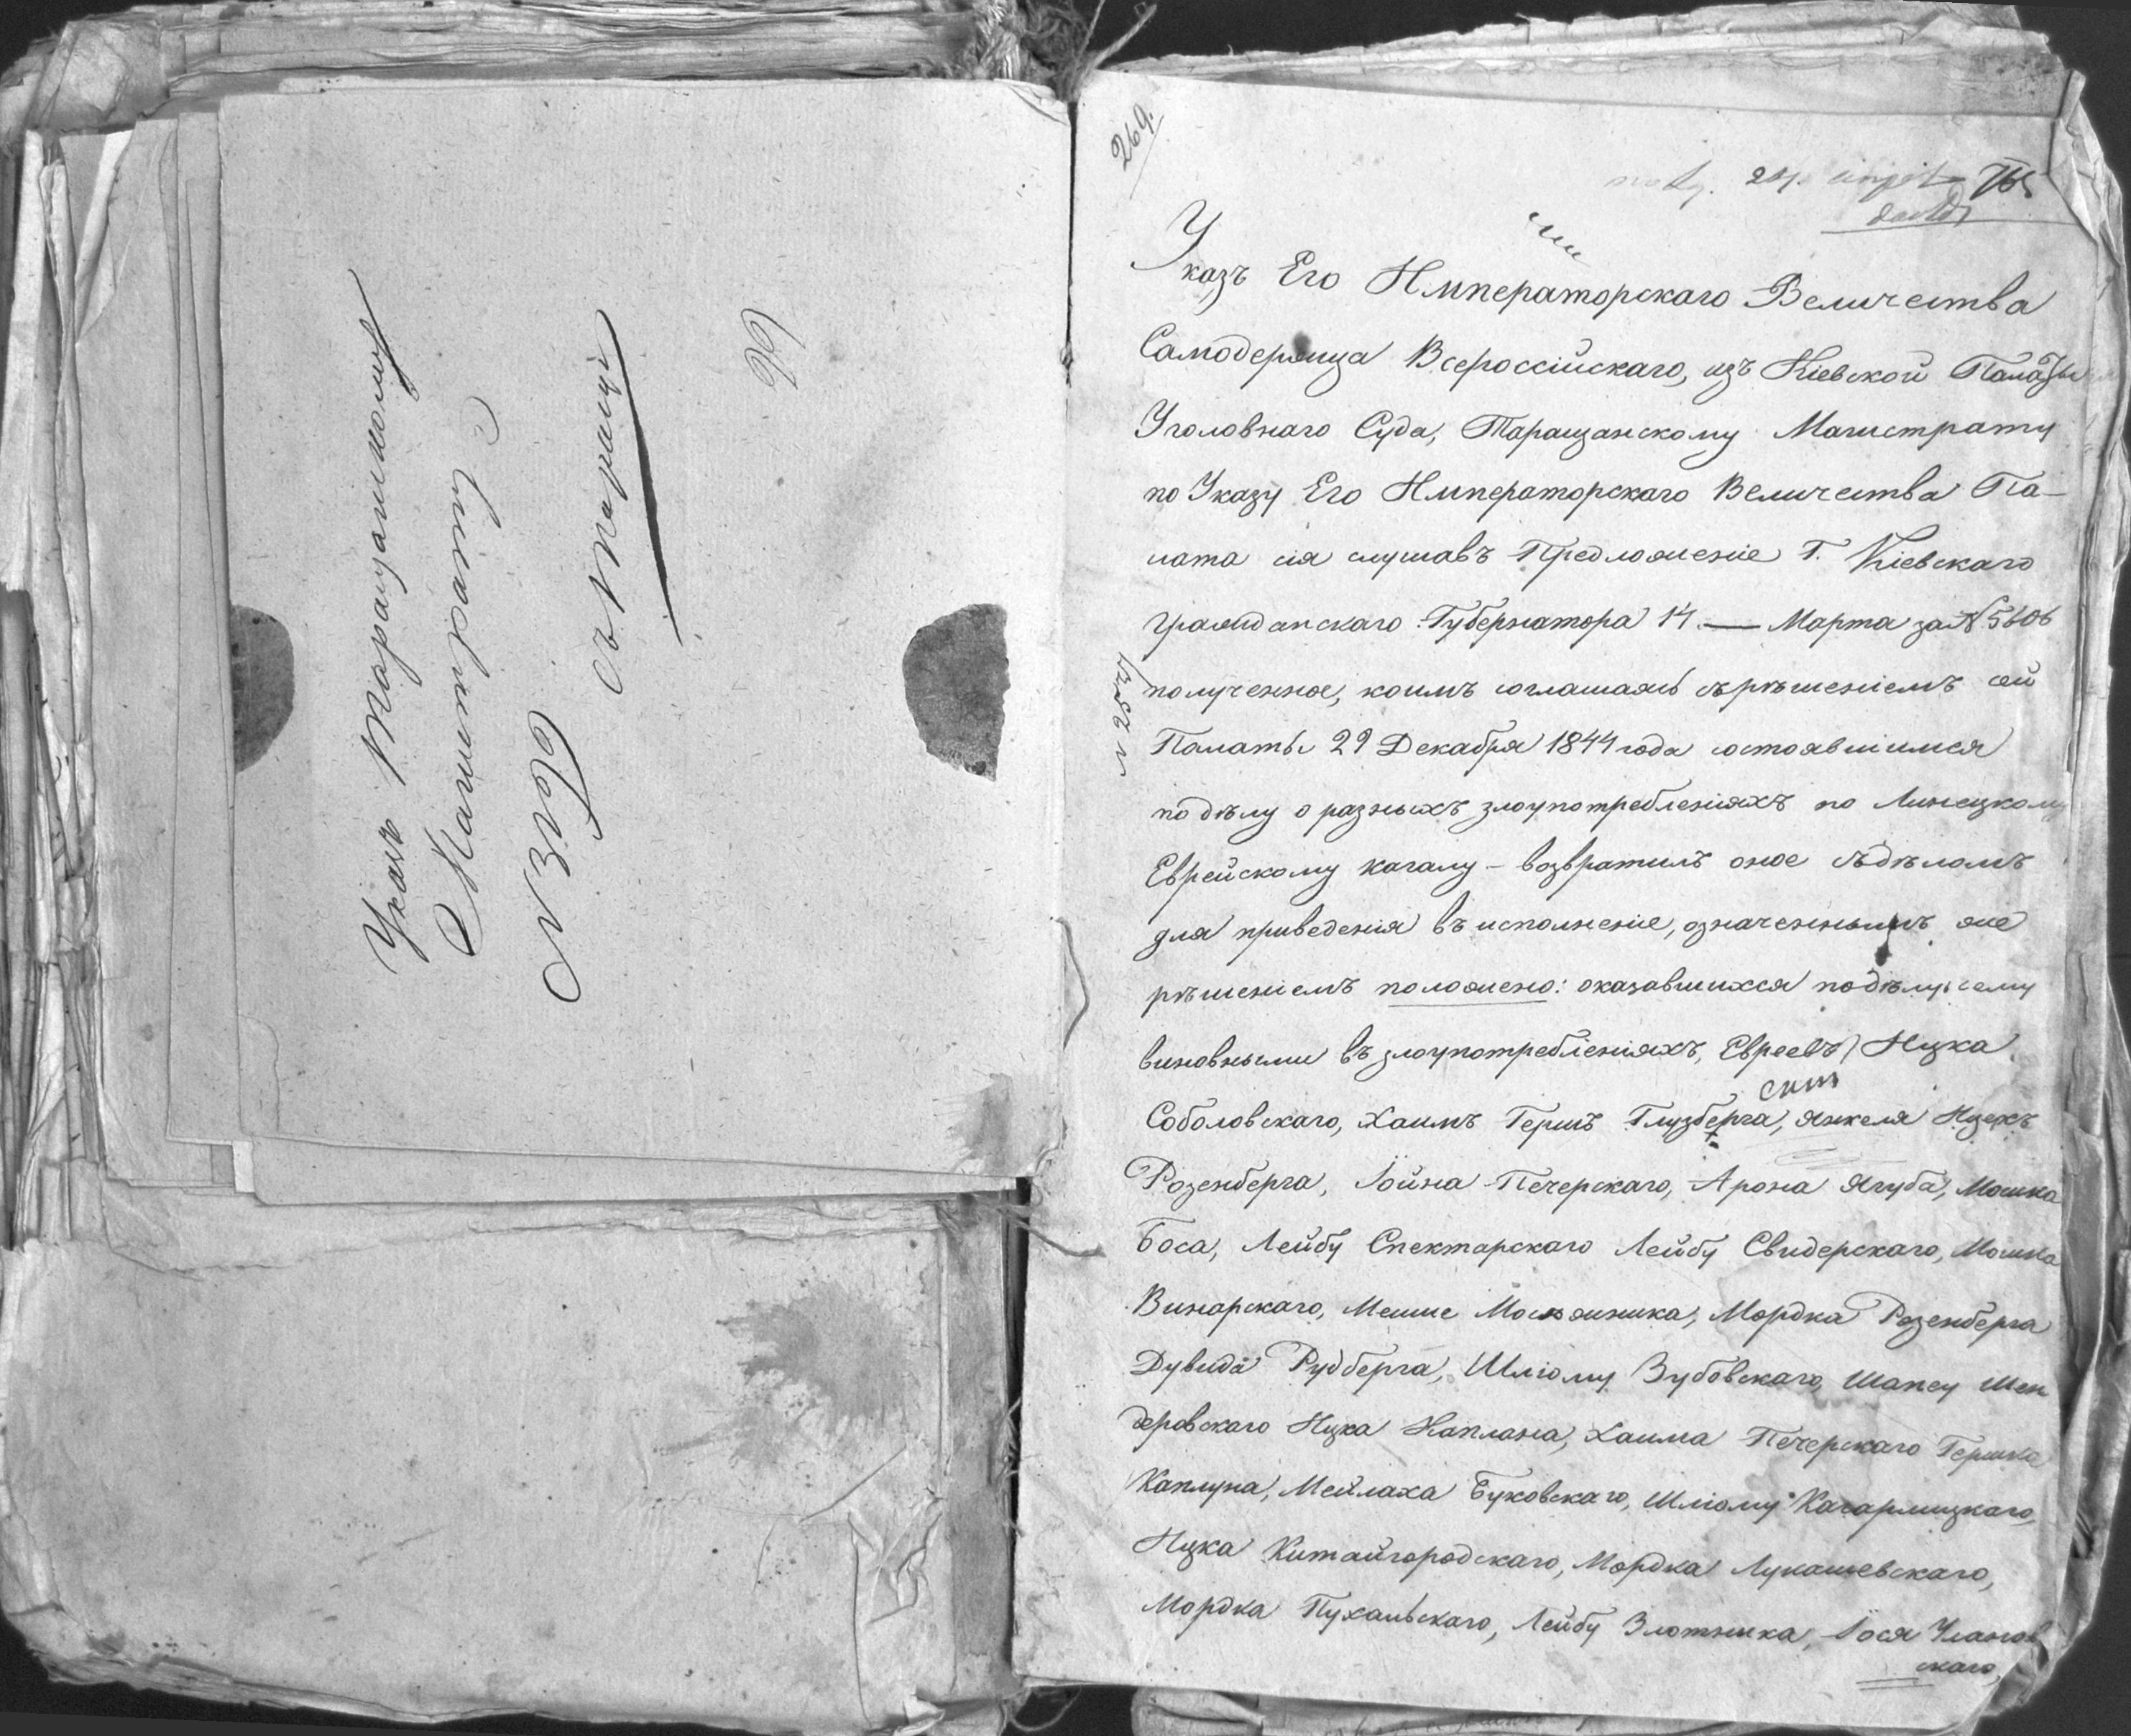 Указъ Таращанскому
Магистрату
№ 3796
въ Таращѣ
99
269.
765
Указъ Его Императорскаго Величества
Самодержца Всероссійскаго, изъ Кіевской Палаты
Уголовнаго Суда, Таращанскому Магистрату
по Указу Его Императорскаго Величества Па-
лата сія слушавъ Предложеніе Г. Кіевскаго
Гражданскаго Губернатора 14 — Марта за № 5606
полученное, коимъ соглашаясь съ рѣшеніемъ сей
Палаты 29 Декабря 1844 года состоявшимся
по дѣлу о разныхъ злоупотребленіяхъ по Линецкому
Еврейскому кагалу – возвратилъ оное съ дѣломъ
для приведенія въ исполненіе, означеннымъ же
рѣшеніемъ положено: оказавшихся по дѣлу сему
виновными въ злоупотребленіяхъ, Евреевъ Ицка
Соболовскаго, Хаимъ Гершъ Глузберга, Янкеля Ицехъ
Розенберга, Іойна Печерскаго, Арона Ягуба, Мошка
Боса, Лейбу Спектарскаго Лейбу Свидерскаго, Мошка
Винарскаго, Мешие Мосяжника, Мордка Розенберга
Дувида Рудберга, Шліому Зубовскаго, Шапсу Шен
деровскаго Ицка Каплана, Хаима Печерскаго Гершка
Каплуна, Мейлаха Буковскаго, Шліому Кагарлицкаго,
Ицка Китайгородскаго, Мордка Лукашевскаго,
Мордка Пухальскаго, Лейбу Злотника, Іося Уланов
скаго,